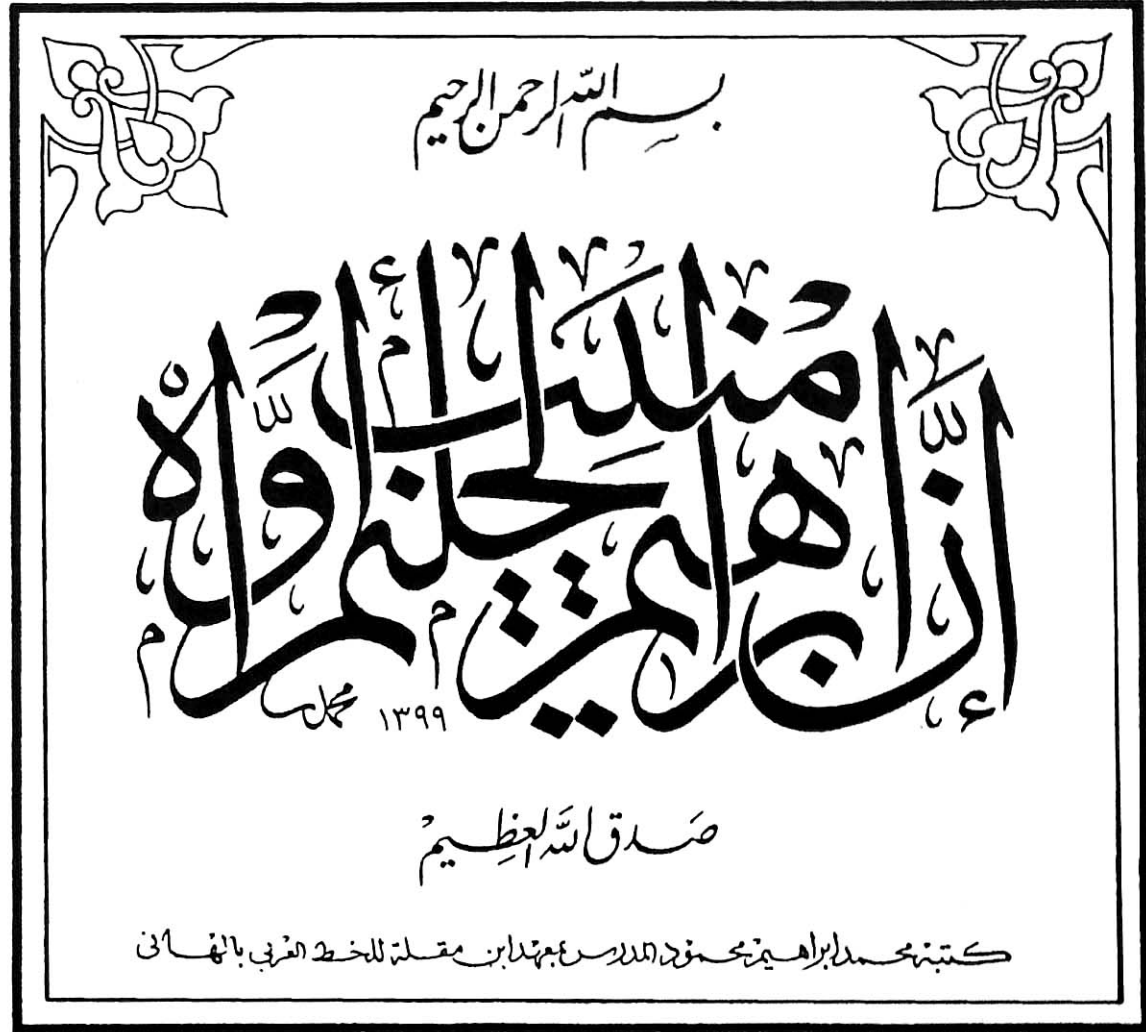 بسم الله الرحمن الرحيم
إن إبراهيم لحليم أواه منيب
محمد ١٣٩٩
صدق الله العظيم
كتبه محمد ابراهيم محمود المدرس بمعهد ابن مقلة للخط العربي